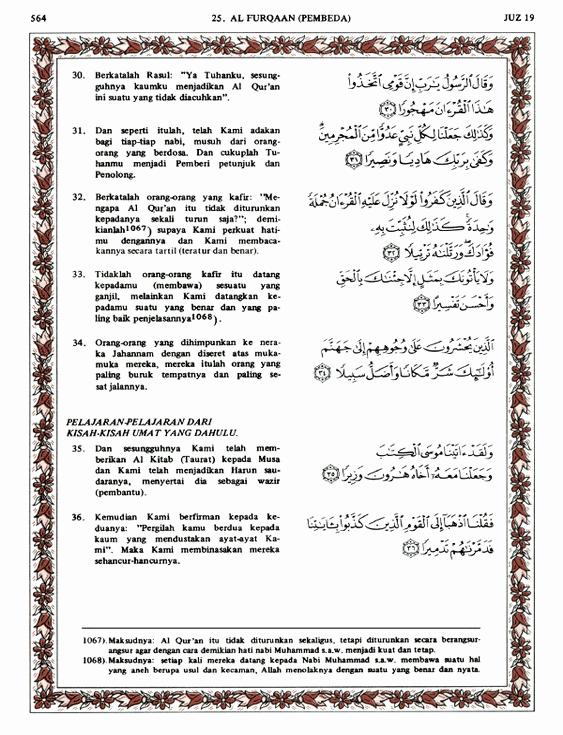 564
25. AL FURQAAN (PEMBEDA)
JUZ 19
30. Berkatalah Rasul: "Ya Tuhanku, sesung-
guhnya kaumku menjadikan Al Qur'an
ini suatu yang tidak diacuhkan".
وَقَالَ ٱلرَّسُولُ يَٰرَبِّ إِنَّ قَوْمِى ٱتَّخَذُوا۟
هَٰذَا ٱلْقُرْءَانَ مَهْجُورًا ﴿٣٠﴾
31. Dan seperti itulah, telah Kami adakan
bagi tiap-tiap nabi, musuh dari orang-
orang yang berdosa. Dan cukuplah Tu-
hanmu menjadi Pemberi petunjuk dan
Penolong.
وَكَذَٰلِكَ جَعَلْنَا لِكُلِّ نَبِىٍّ عَدُوًّا مِّنَ ٱلْمُجْرِمِينَ
وَكَفَىٰ بِرَبِّكَ هَادِيًا وَنَصِيرًا ﴿٣١﴾
32. Berkatalah orang-orang yang kafir: "Me-
ngapa Al Qur'an itu tidak diturunkan
kepadanya sekali turun saja?"; demi-
kianlah1067) supaya Kami perkuat hati-
mu dengannya dan Kami membaca-
kannya secara tartil (teratur dan benar).
وَقَالَ ٱلَّذِينَ كَفَرُوا۟ لَوْلَا نُزِّلَ عَلَيْهِ ٱلْقُرْءَانُ جُمْلَةً
وَٰحِدَةً ۚ كَذَٰلِكَ لِنُثَبِّتَ بِهِۦ
فُؤَادَكَ ۖ وَرَتَّلْنَٰهُ تَرْتِيلًا ﴿٣٢﴾
33. Tidaklah orang-orang kafir itu datang
kepadamu (membawa) sesuatu yang
ganjil, melainkan Kami datangkan ke-
padamu suatu yang benar dan yang pa-
ling baik penjelasannya1068).
وَلَا يَأْتُونَكَ بِمَثَلٍ إِلَّا جِئْنَٰكَ بِٱلْحَقِّ
وَأَحْسَنَ تَفْسِيرًا ﴿٣٣﴾
34. Orang-orang yang dihimpunkan ke nera-
ka Jahannam dengan diseret atas muka-
muka mereka, mereka itulah orang yang
paling buruk tempatnya dan paling se-
sat jalannya.
ٱلَّذِينَ يُحْشَرُونَ عَلَىٰ وُجُوهِهِمْ إِلَىٰ جَهَنَّمَ
أُو۟لَٰٓئِكَ شَرٌّ مَّكَانًا وَأَضَلُّ سَبِيلًا ﴿٣٤﴾
PELAJARAN-PELAJARAN DARI
KISAH-KISAH UMAT YANG DAHULU.
35. Dan sesungguhnya Kami telah mem-
berikan Al Kitab (Taurat) kepada Musa
dan Kami telah menjadikan Harun sau-
daranya, menyertai dia sebagai wazir
(pembantu).
وَلَقَدْ ءَاتَيْنَا مُوسَى ٱلْكِتَٰبَ
وَجَعَلْنَا مَعَهُۥٓ أَخَاهُ هَٰرُونَ وَزِيرًا ﴿٣٥﴾
36. Kemudian Kami berfirman kepada ke-
duanya: "Pergilah kamu berdua kepada
kaum yang mendustakan ayat-ayat Ka-
mi". Maka Kami membinasakan mereka
sehancur-hancurnya.
فَقُلْنَا ٱذْهَبَآ إِلَى ٱلْقَوْمِ ٱلَّذِينَ كَذَّبُوا۟ بِـَٔايَٰتِنَا
فَدَمَّرْنَٰهُمْ تَدْمِيرًا ﴿٣٦﴾
1067). Maksudnya: Al Qur'an itu tidak diturunkan sekaligus, tetapi diturunkan secara berangsur-
angsur agar dengan cara demikian hati nabi Muhammad s.a.w. menjadi kuat dan tetap.
1068). Maksudnya: setiap kali mereka datang kepada Nabi Muhammad s.a.w. membawa suatu hal
yang aneh berupa usul dan kecaman, Allah menolaknya dengan suatu yang benar dan nyata.